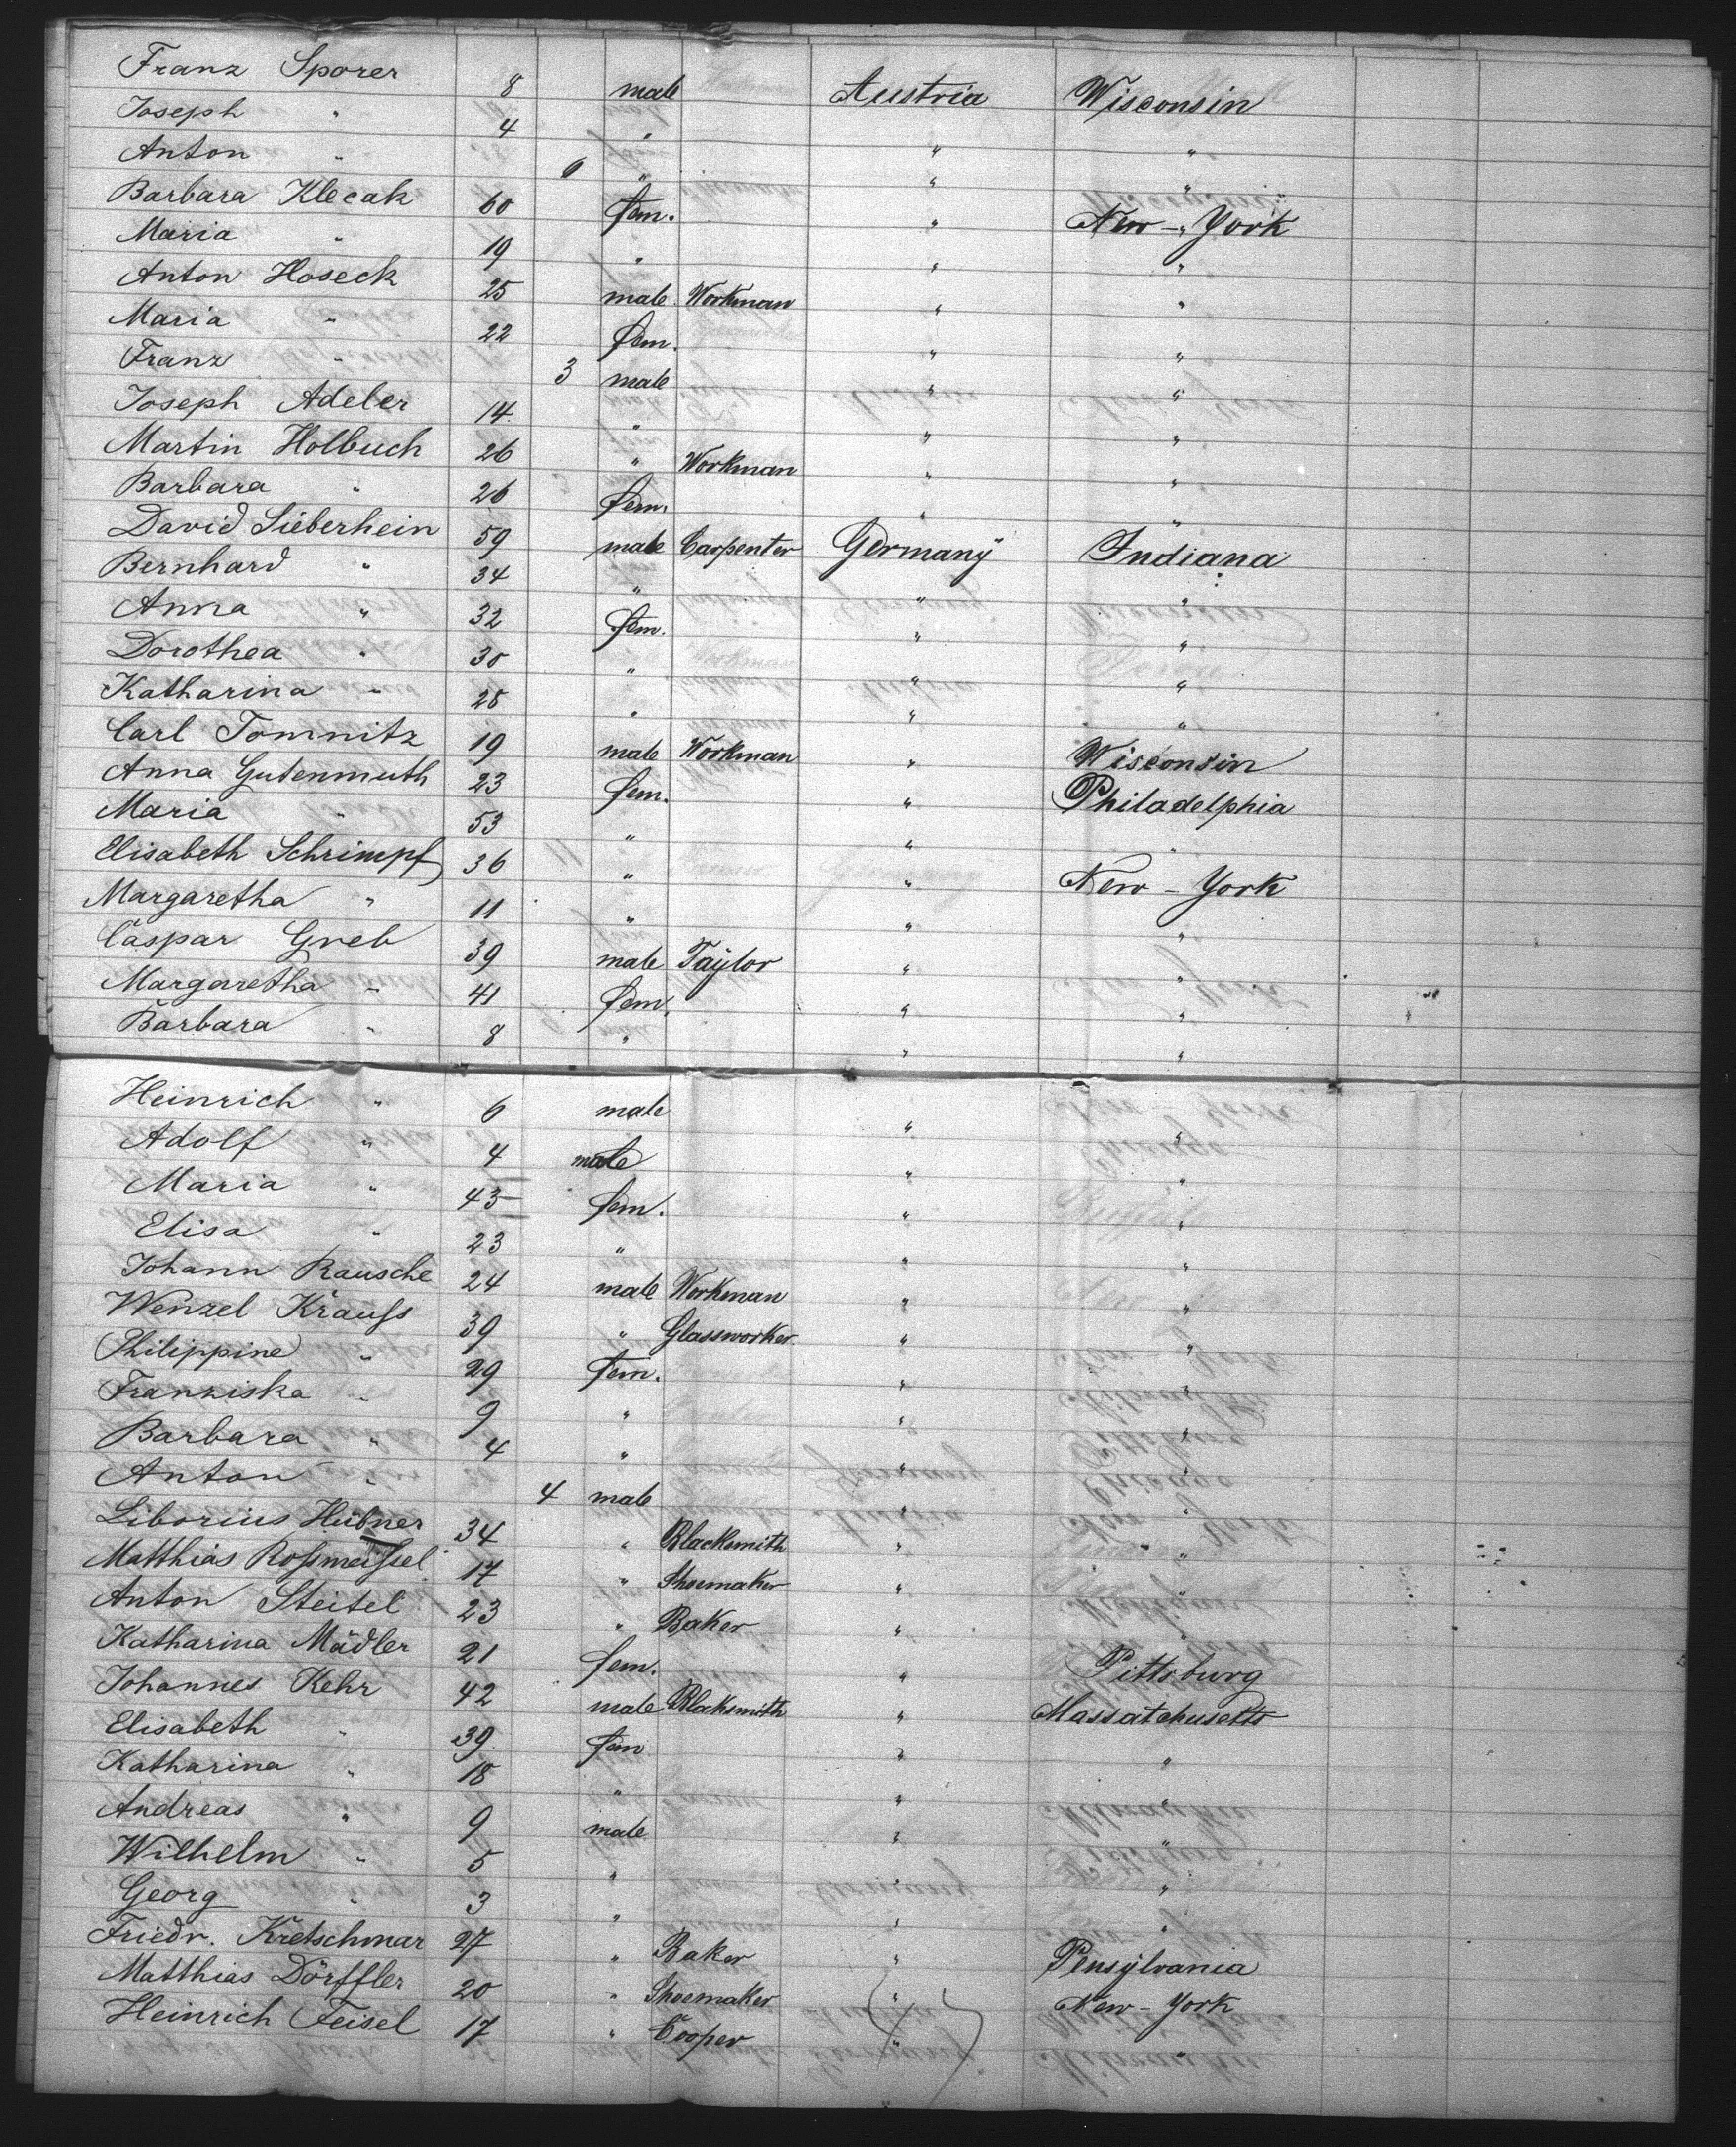 Franz Sporer 8 male Austria Wisconsin
Joseph " 4 " " "
Anton " 6 " " "
Barbara Klecak 60 fem. " New-York
Maria " 19 " " "
Anton Hoseck 25 male Workman " "
Maria " 22 fem. " "
Franz " 3 male " "
Joseph Adeler 14 " " "
Martin Holbuch 26 " Workman " "
Barbara " 26 fem. " "
David Lieberhein 59 male Carpenter Germanÿ Indiana
Bernhard " 34 " " "
Anna " 32 fem. " "
Dorothea " 30 " " "
Katharina " 28 " " "
Carl Tomnitz 19 male Workman " Wisconsin
Anna Gutenmuth 23 fem. " Philadelphia
Maria " 53 " " "
Elisabeth Schrimpf 36 " " New-York
Margaretha " 11 " " "
Caspar Greb 39 male Taÿlor " "
Margaretha " 41 fem. " "
Barbara " 8 " " "
Heinrich " 6 male " "
Adolf " 4 male " "
Maria " 43 fem. " "
Elisa " 23 " " "
Johann Rausche 24 male Workman " "
Wenzel Krauß 39 " Glassworker " "
Philippine " 29 fem. " "
Franziska " 9 " " "
Barbara " 4 " " "
Anton " 4 male " "
Liborius Hübner 34 " Blacksmith " "
Matthias Roßmeißel 17 " Shoemaker " "
Anton Steitel 23 " Baker " "
Katharina Mädler 21 fem. " Pittsburg
Johannes Kehr 42 male Blaksmith " Massatchusetts
Elisabeth " 39 fem " "
Katharina " 18 " " "
Andreas " 9 male " "
Wilhelm " 5 " " "
Georg " 3 " " "
Friedr. Kretschmar 27 " Baker " Pensÿlvania
Matthias Dörffler 20 " Shoemaker " New-York
Heinrich Feisel 17 " Cooper " "